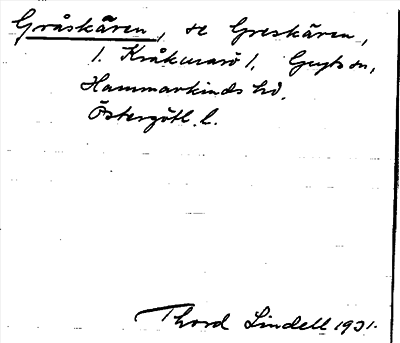 Gråskären, se Greskären,
1. Kråkmarö 1, Gryts sn,
Hammarkinds hd.
Östergötl. l.
Thord Lindell 1931.